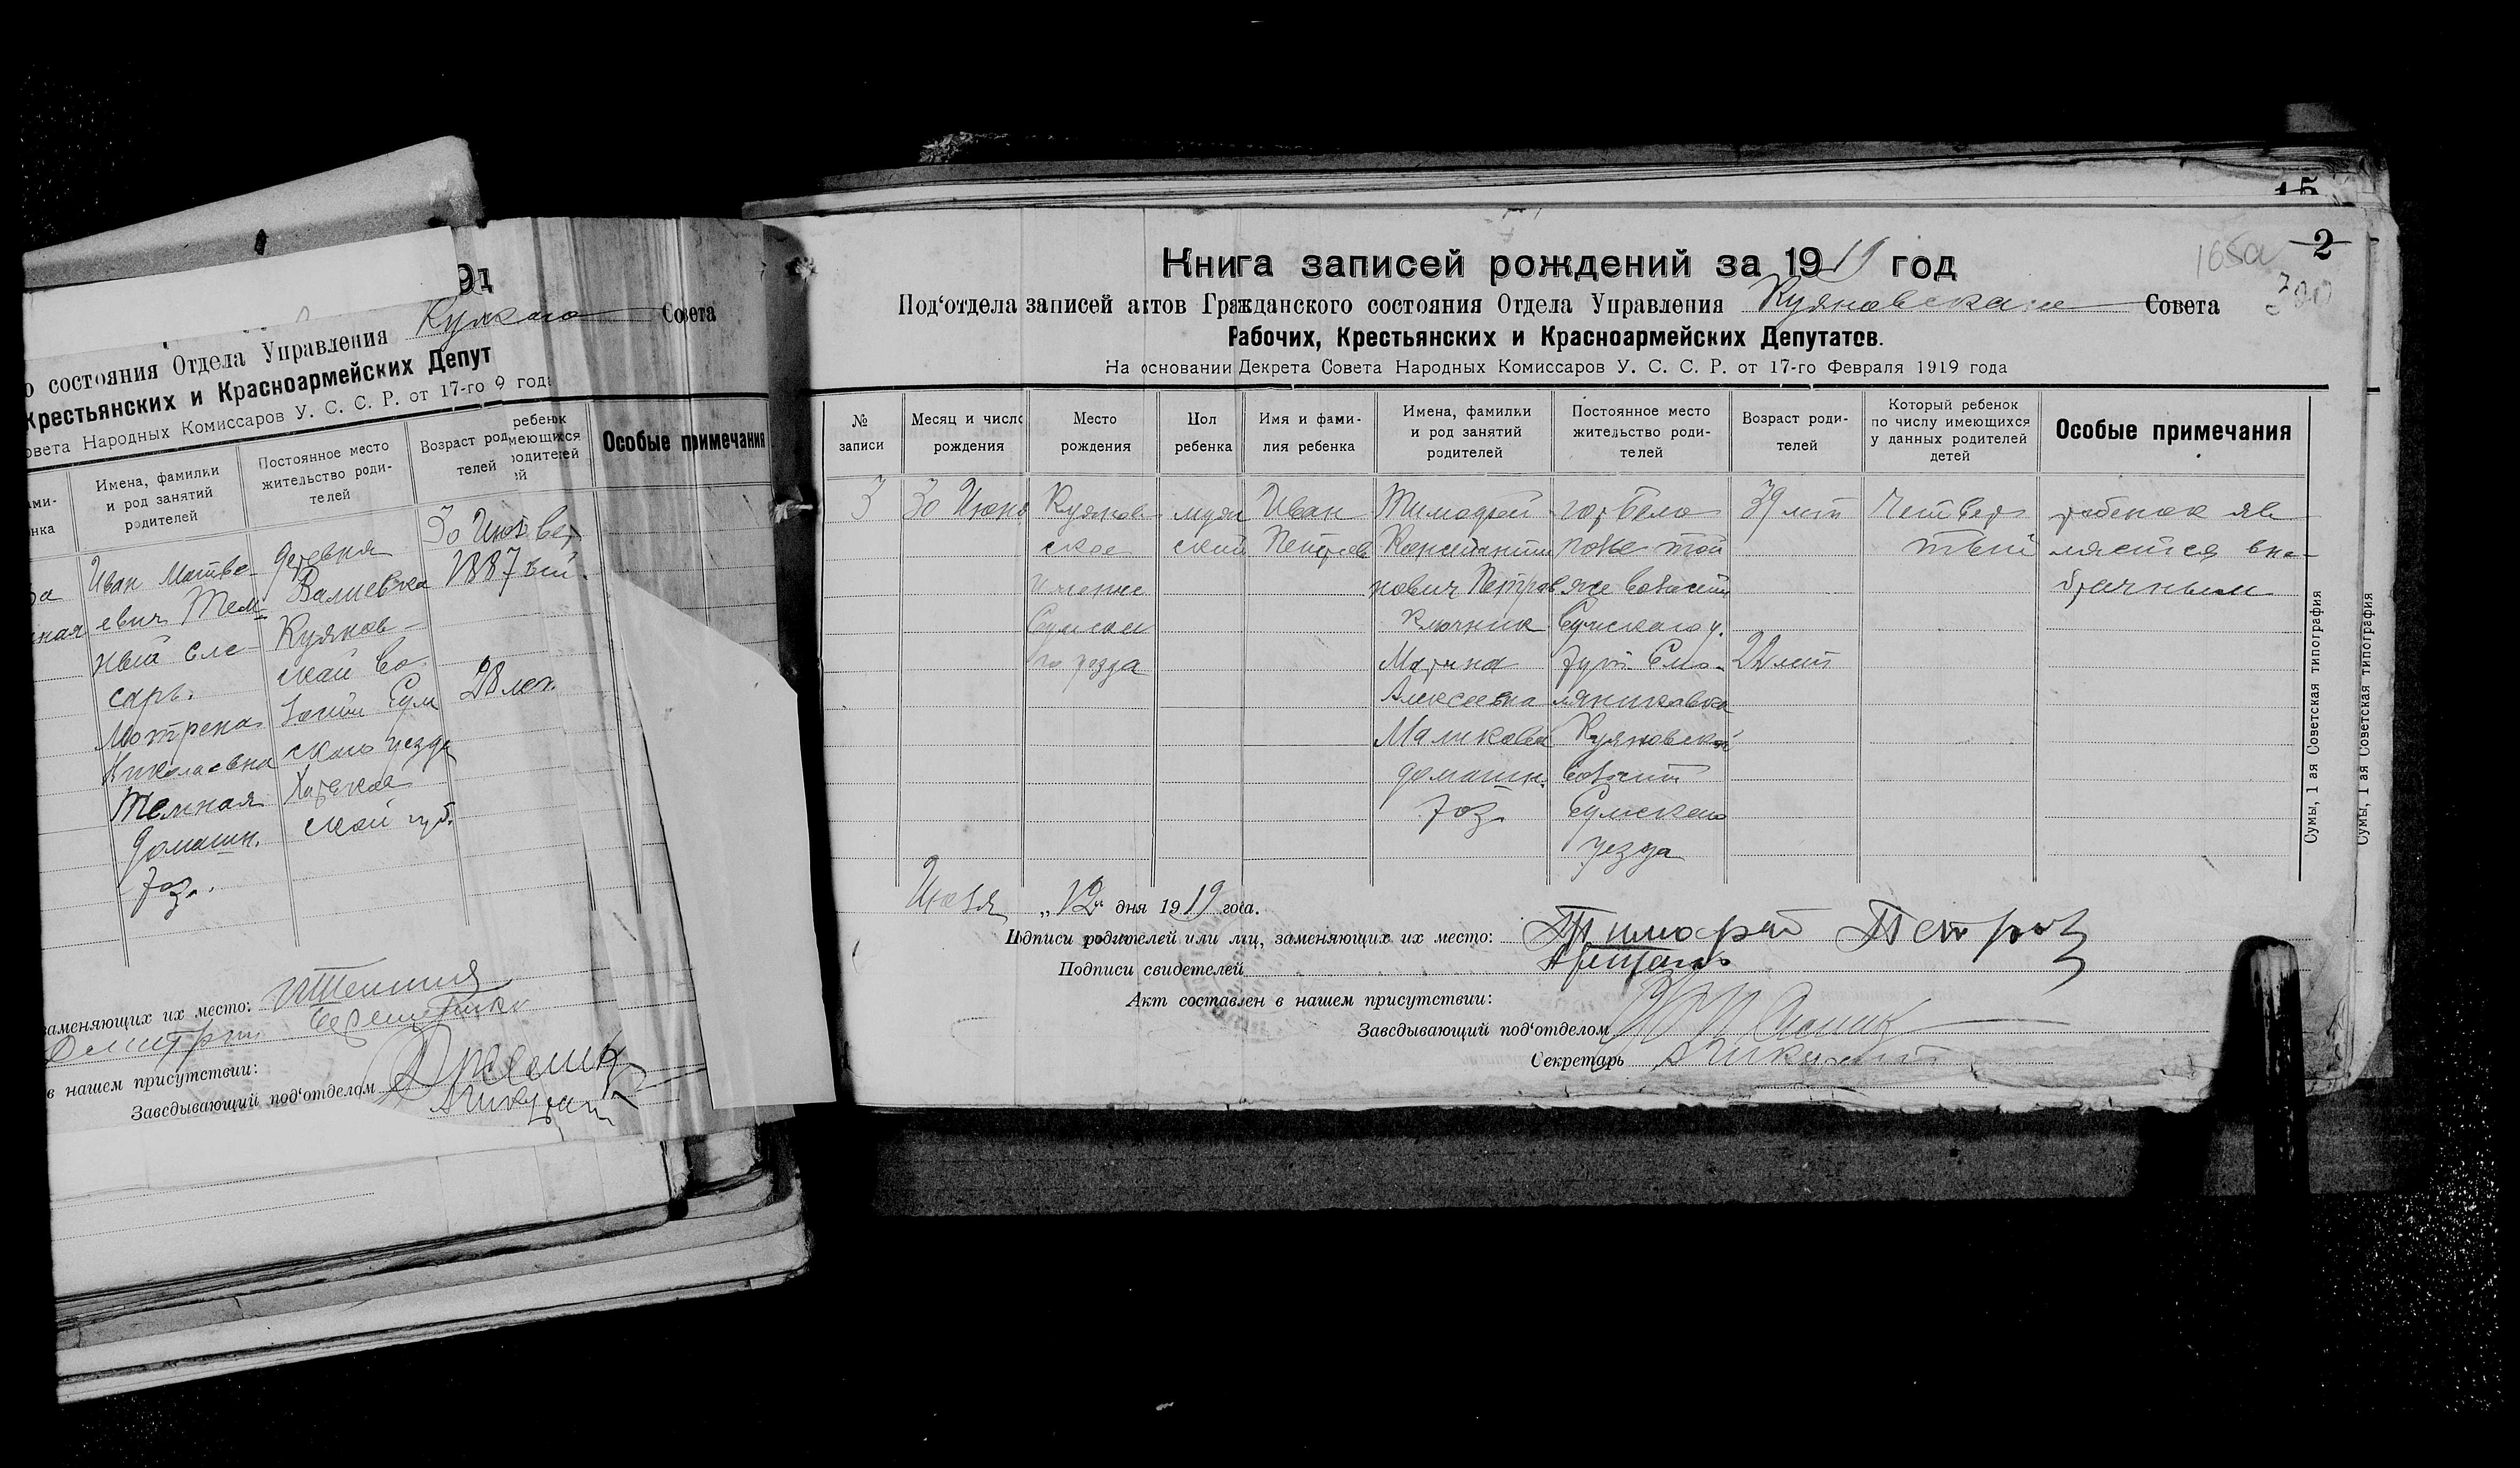 91
Совета
о состояния Отдела Управления
Крестьянских и Красноармейских Депут
овета Народных Комиссаров У. С. С. Р. от 17-го 9 года
Имена, фамилии и род занятий родителей
Постоянное место жительство родителей
Возраст род телей
ребенок
меющихся
родителей
Особые примечания
Иван Матве-
евич Тем-
ный сле-
сарь.
Мотрена
Николаевна
Темная
домашн.
хоз.
деревня
Валиевка
Куянов-
ской во-
лости Сум
ского уезда
Харьков
ской губ.
28 лет
заменяющих их место:
в нашем присутствии:
Заведывающий под'отделом
15
2
165а
Книга записей рождений за 1919 год
Под'отдела записей актов Гражданского состояния Отдела Управления Куяновскаго Совета
Рабочих, Крестьянских и Красноармейских Депутатов.
На основании Декрета Совета Народных Комиссаров У. С. С. Р. от 17-го Февраля 1919 года
№ записи
Месяц и число рождения
Место рождения
Пол ребенка
Имя и фамилия ребенка
Имена, фамилии и род занятий родителей
Постоянное место жительство родителей
Возраст родителей
Который ребенок по числу имеющихся у данных родителей детей
Особые примечания
3
30 Июня
Куянов
ское
Имение
Сумско
го уезда
муж
ский
Иван
Петров
Тимофей
Константи
нович Петров
Ключник
Марина
Алексеевна
Маликова
домашн.
хоз.
гор Бело
полье той
же волости
Сумскаго у.
хут. Смо-
ляниковка
Куяновской
волости
Сумскаго
уезда
39 лет
22 лет
Четвер
тый
ребенок яв
ляется вне-
брачным
Июля „12“ дня 1919 года.
Подписи родителей или лиц, заменяющих их место: Тимофей Петров
Подписи свидетелей
Акт составлен в нашем присутствии:
Заведывающий под'отделом
Секретарь
Сумы, 1 ая Советская типография
Сумы, 1 ая Советская типография